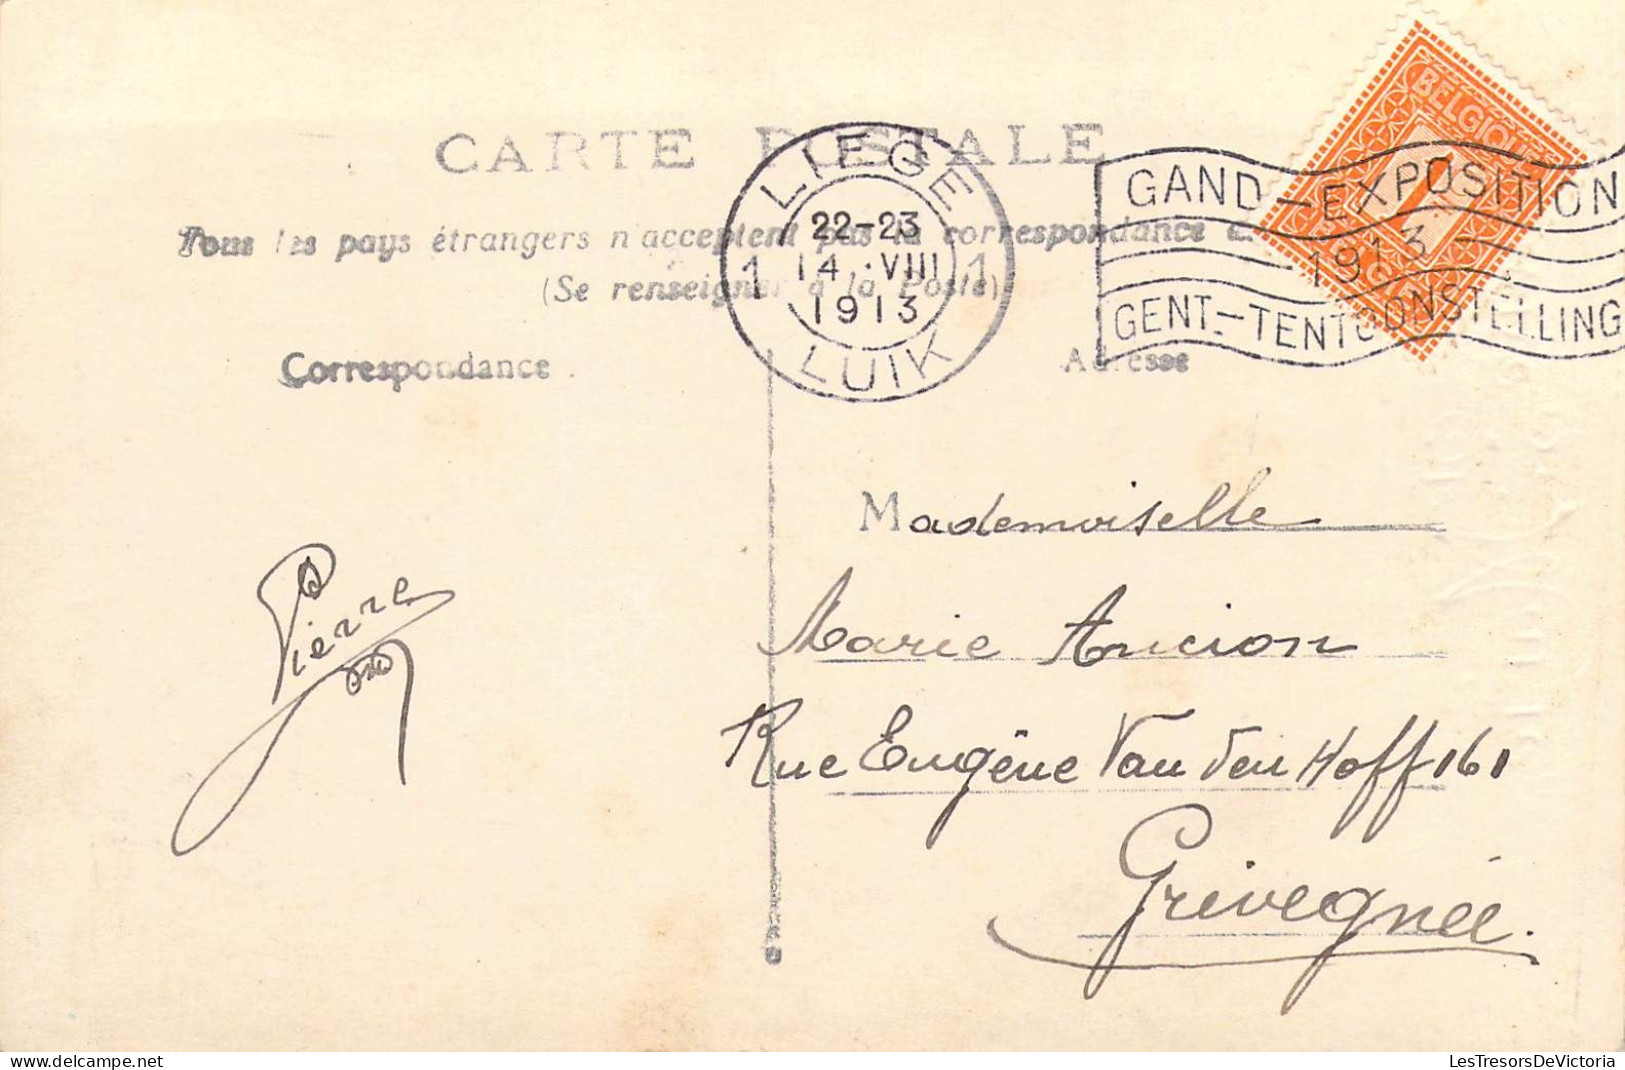 CARTE POSTALE
Tous les pays étrangers n'acceptent pas la correspondance a.
(Se renseigner à la Poste)
Correspondance
Adresse
LIEGE
22-23
1 14 VIII 1
1913
LUIK
BELGIQUE
1
GAND-EXPOSITION
1913
GENT-TENTOONSTELLING
Mademoiselle
Marie Ancion
Rue Eugène Van den Hoff 161
Grivegnée.
Pierre
LesTresorsDeVictoria